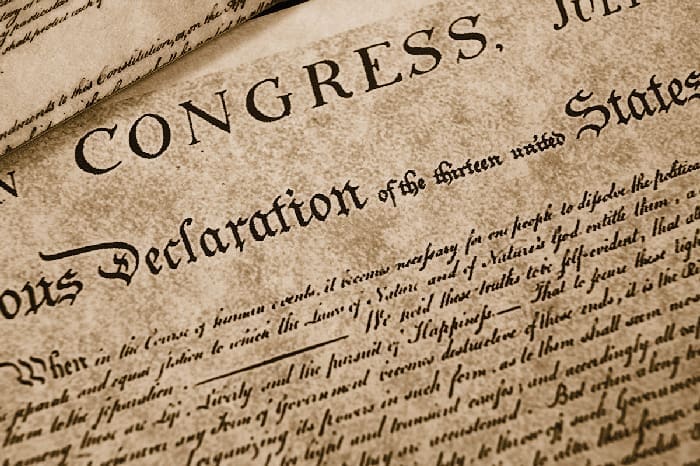 to this Constitution, or, on the
N CONGRESS, JUL
ous Declaration of the thirteen united States
When in the Course of human events, it becomes necessary for one people to dissolve the political
separate and equal station to which the Laws of Nature and of Nature's God entitle them, a
them to the separation. — We hold these truths to be self-evident, that all
among these are Life, Liberty and the pursuit of Happiness. — That to secure these righ
any Form of Government becomes destructive of these ends, it is the
organizing its powers in such form, as to them shall seem mos
light and transient causes; and accordingly all
they are accustomed. But when a long
to throw off such Governm
to alter their former